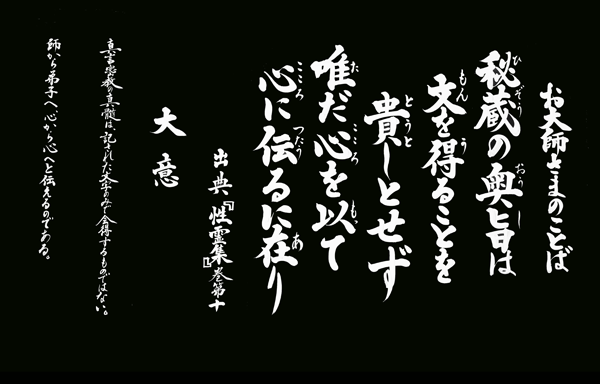 お大師さまのことば
秘蔵の奥旨は
文を得ることを
貴しとせず
唯だ心を以て
心に伝るに在り
出典『性霊集』巻第十
大意
真言密教の真髄は、記された文字のみで会得するものではない。
師から弟子へ、心から心へと伝えるのである。